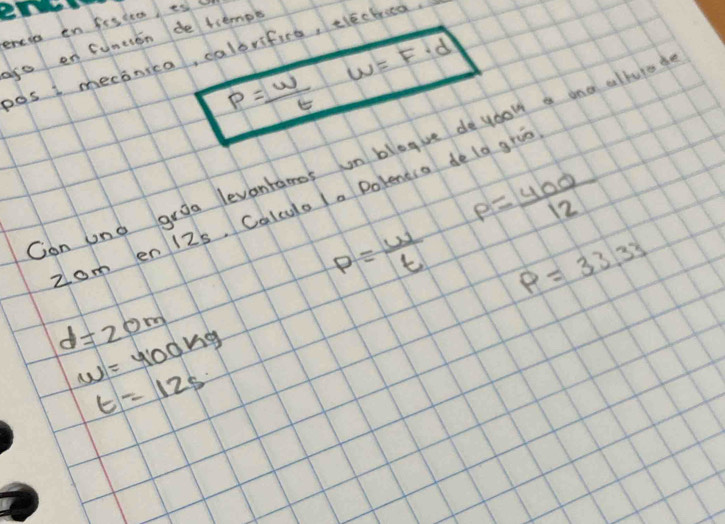 encia en física, es
ajo en función de tiempo
pos: mecánica, calorífica, eléctrica.
P = W/t W = F·d
Con una grúa levantamos un bloque de 400N a una altura de
20m en 12s. Calcula la Potencia de la grúa.
P = w/t P = 400/12
P = 33.33
d = 20m
w = 400Kg
t = 12s.